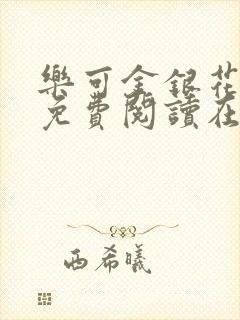 樂可金銀花
免費閱讀在
西希曦